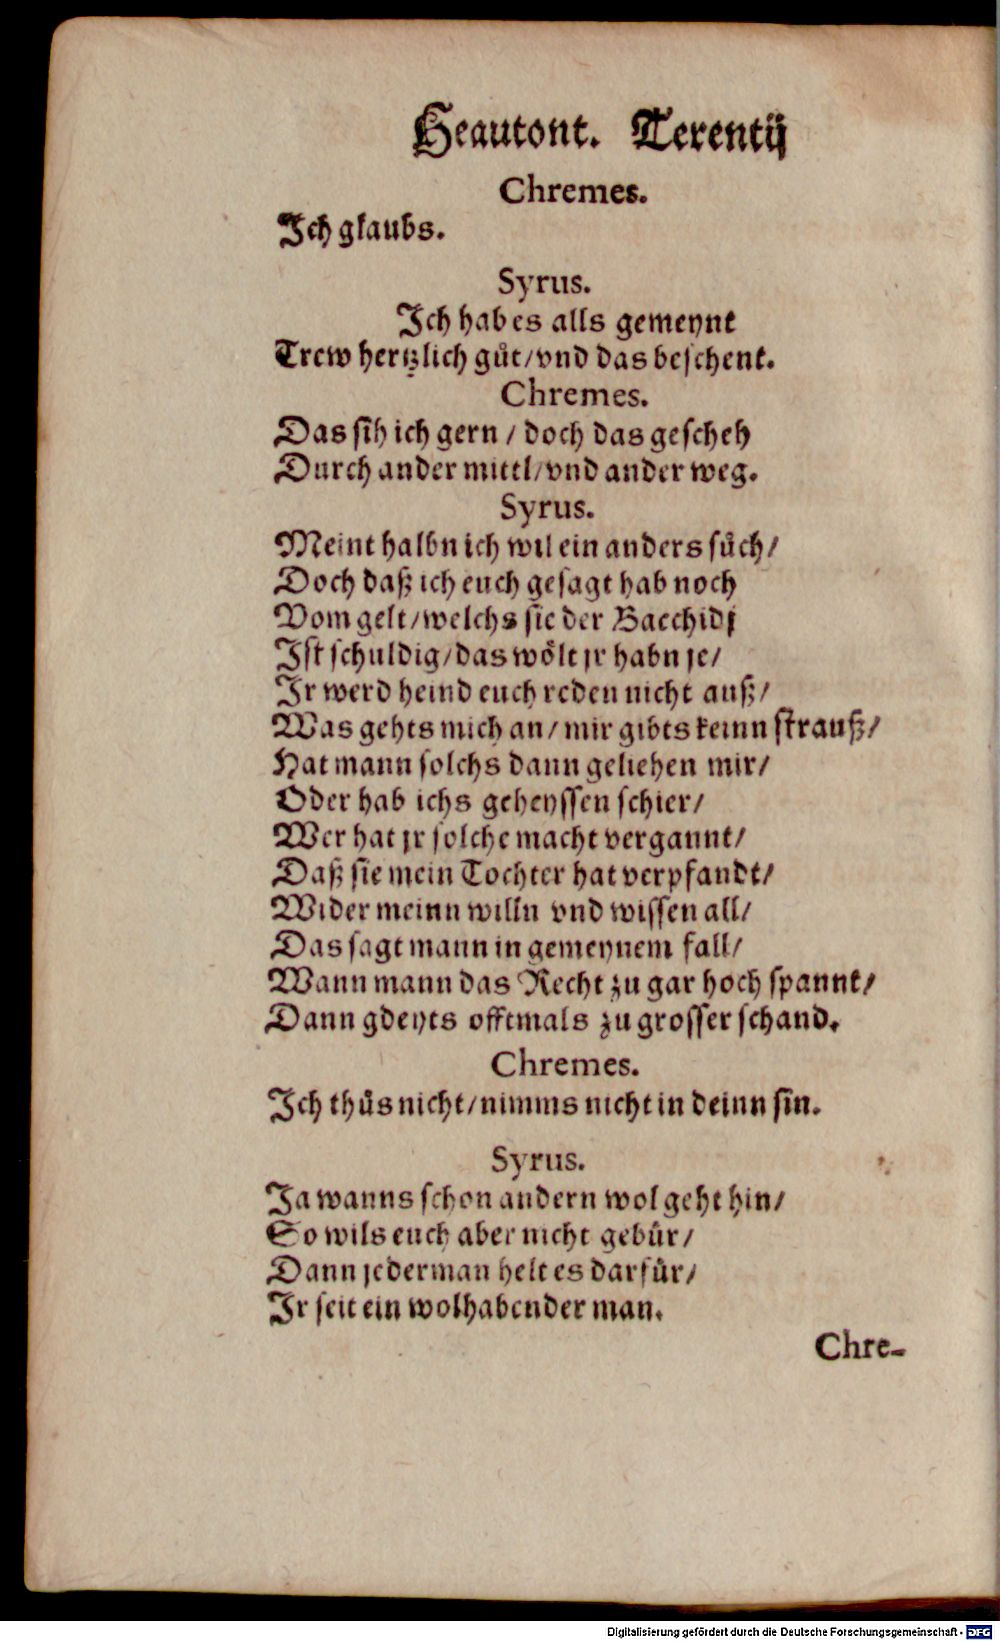 Heautont. Terentij
Chremes.
Ich glaubs.
Syrus.
Ich hab es alls gemeynt
Trew hertzlich guͤt/vnd das beschent.
Chremes.
Das sih ich gern / doch das gescheh
Durch ander mittl/vnd ander weg.
Syrus.
Meint halbn ich wil ein anders suͤch/
Doch daß ich euch gesagt hab noch
Vom gelt/welchs sie der Bacchidi
Ist schuldig/das woͤlt jr habn je/
Ir werd heind euch reden nicht auß/
Was gehts mich an/ mir gibts keinn strauß/
Hat mann solchs dann geliehen mir/
Oder hab ichs geheyssen schier/
Wer hat jr solche macht vergannt/
Daß sie mein Tochter hat verpfandt/
Wider meinn willn vnd wissen all/
Das sagt mann in gemeynem fall/
Wann mann das Recht zu gar hoch spannt/
Dann gdeyts offtmals zu grosser schand.
Chremes.
Ich thuͤs nicht/nimms nicht in deinn sin.
Syrus.
Ja wanns schon andern wol geht hin/
So wils euch aber nicht gebuͤr/
Dann jederman helt es darfuͤr/
Ir seit ein wolhabender man.
Chre-
Digitalisierung gefördert durch die Deutsche Forschungsgemeinschaft - DFG